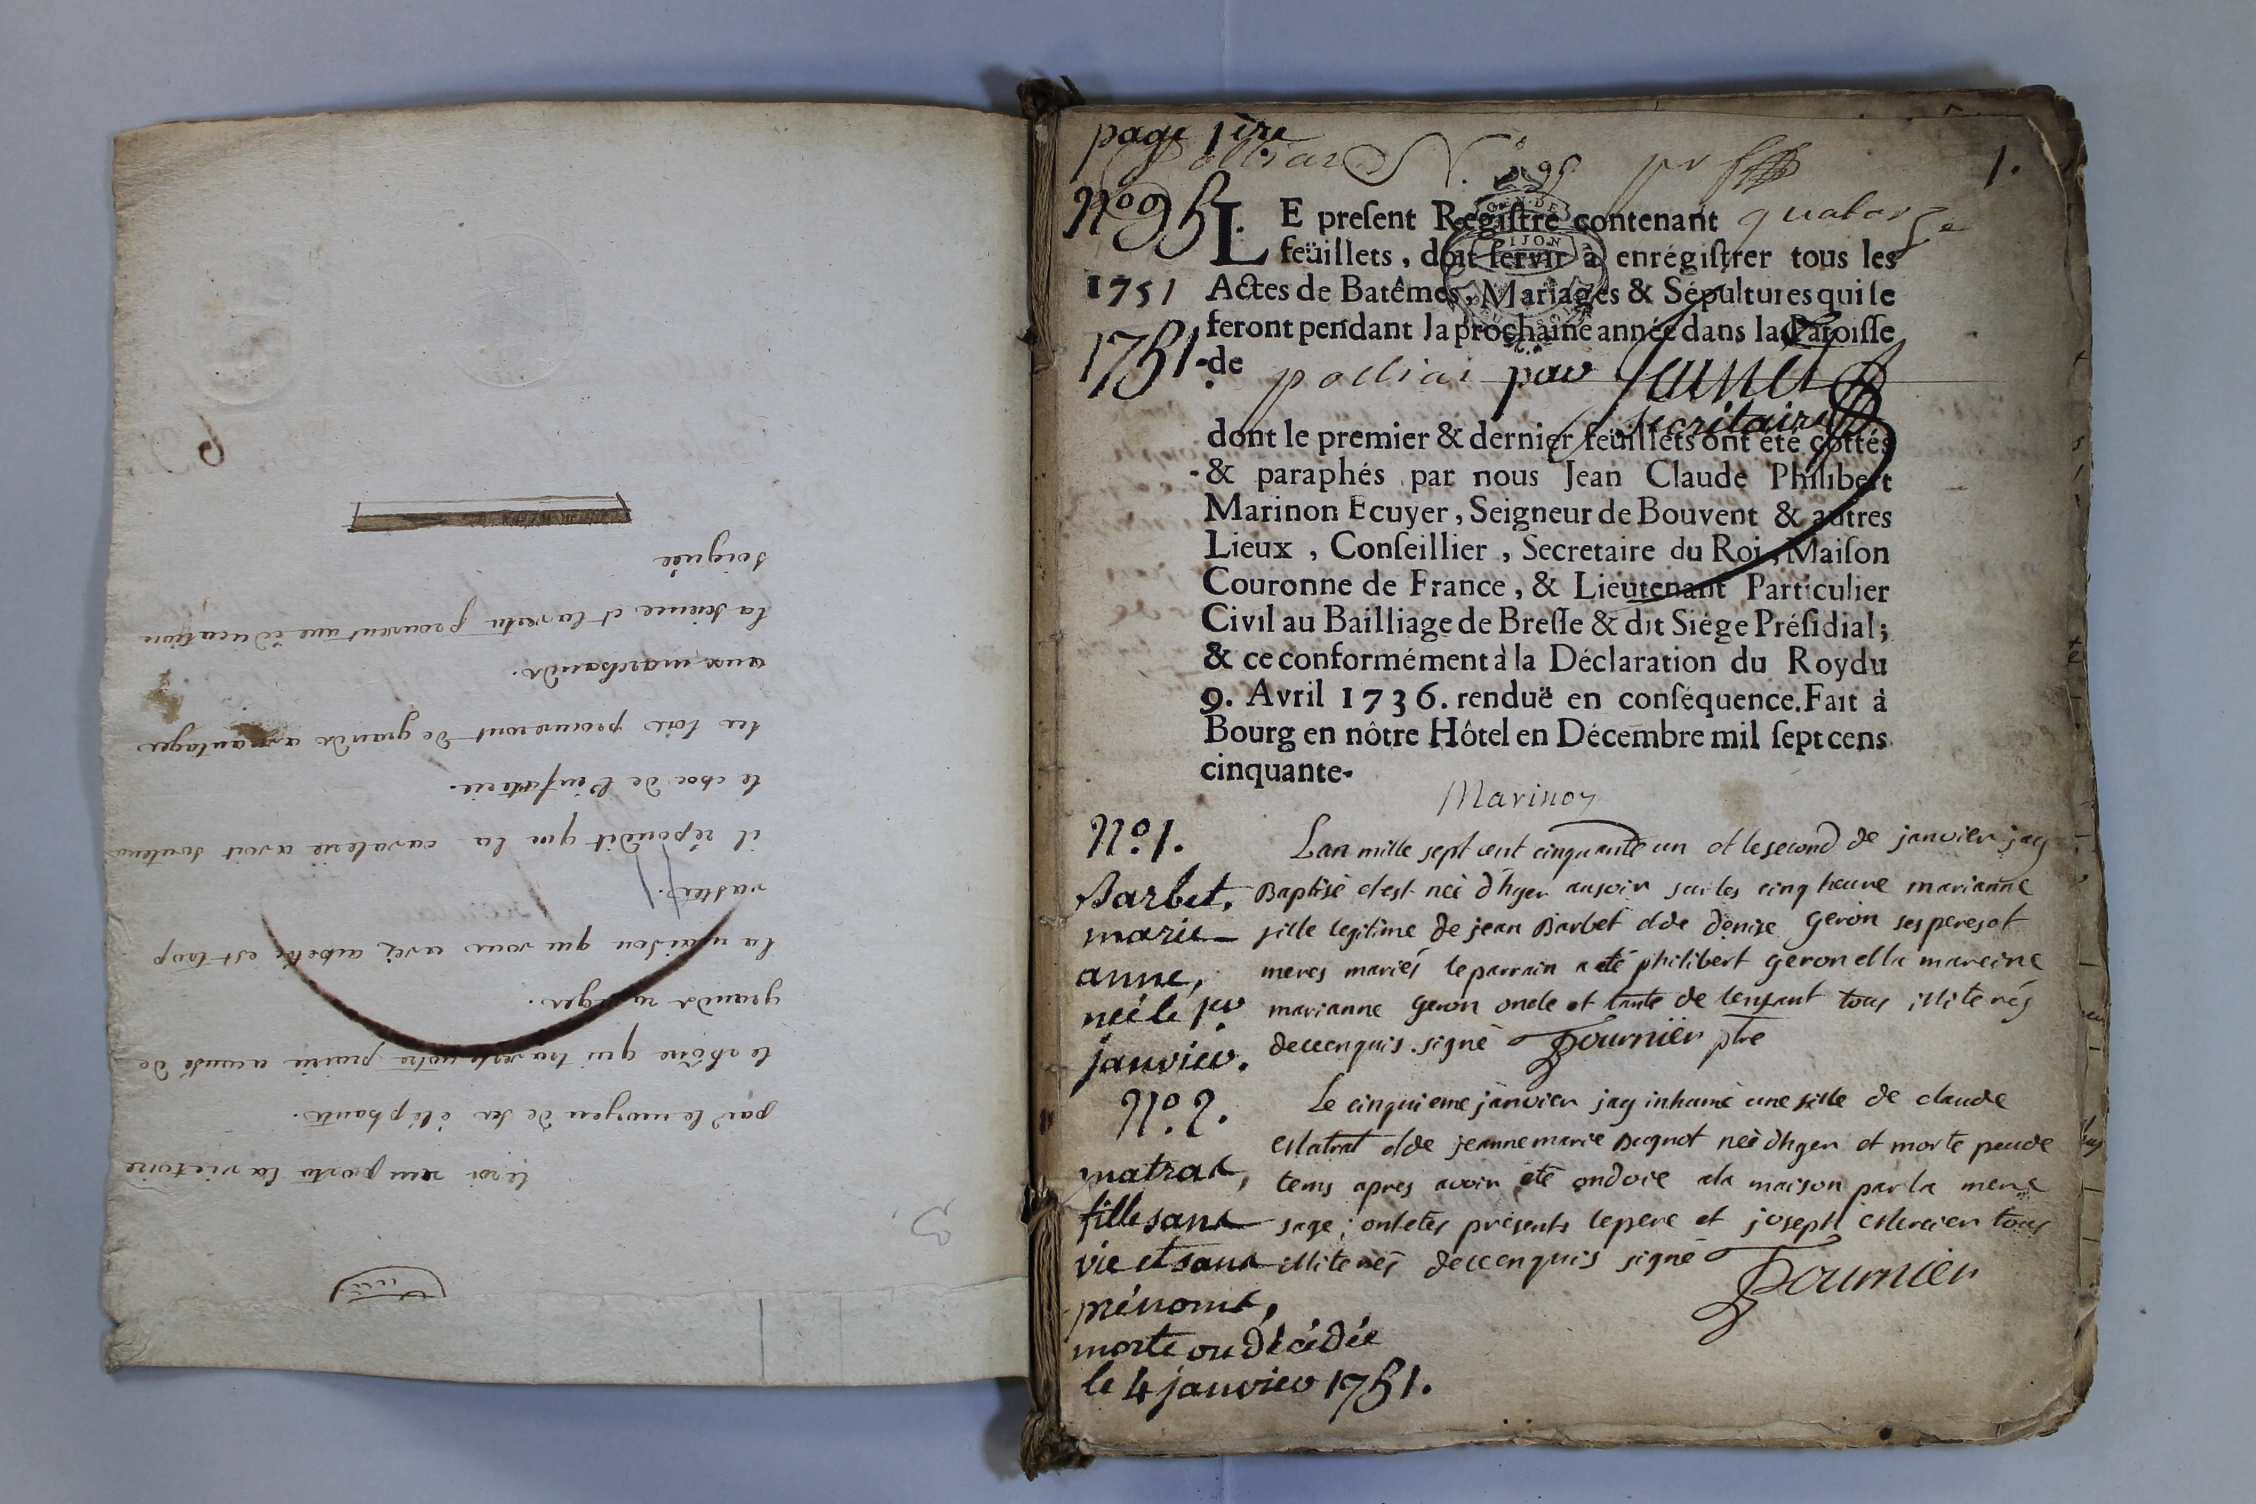 le roi remporta la victoire
par le moyen de ses éléphants.
le rhône qui traverse notre prairie a causé de
grands ravages.
la maison que vous avez achetée est trop
vaste.
il répondit que la cavalerie avoit soutenu
le choc de l'infanterie.
ses lois procurerent de grands avantages
aux marchands.
la science et la vertu prouvent une éducation
soignée
page 1ère
polliar N.° 95
1.
N° 95.
LE preſent Regiſtre contenant quatorze
feüillets, doit ſervir à enrégiſtrer tous les
1751
Actes de Batêmes, Mariages & Sépultures qui ſe
feront pendant la prochaine année dans la Paroiſſe
1751.
de polliai par
secrétaire
dont le premier & dernier feüillets ont été cottés
& paraphés par nous Jean Claude Philibert
Marinon Ecuyer, Seigneur de Bouvent & autres
Lieux, Conſeillier, Secretaire du Roi, Maiſon
Couronne de France, & Lieutenant Particulier
Civil au Bailliage de Breſſe & dit Siége Préſidial;
& ce conformément à la Déclaration du Roy du
9. Avril 1736. renduë en conſéquence. Fait à
Bourg en nôtre Hôtel en Décembre mil ſept cens
cinquante.
Marinon
N.° 1.
Barbet,
marie
anne,
née le 1er
janvier.
Lan mille sept cent cinquante un et le second de janvier jay
Baptisé et est neè d'hyer au soir sur les cinq heure marianne
fille legitime de jean Barbet et de denise geron ses peres et
meres mariés le parrain a eté philibert geron et la mareine
marianne geron oncle et tante de lenfant tous illiterés
de ce enquis. signé Fournier ptre
N.° 2.
matrat,
fille sans
vie et sans
prénoms,
morte ou décédée
le 4 janvier 1751.
Le cinquieme janvier jay inhumé une fille de claude
Matrat et de jeanne marie Bugnot neè d'hyer et morte peu de
tems apres avoir eté ondoie a la maison par la mere
sage; ont etes présents le pere et joseph Mercier tous
illiterés de ce enquis signé
Fournier